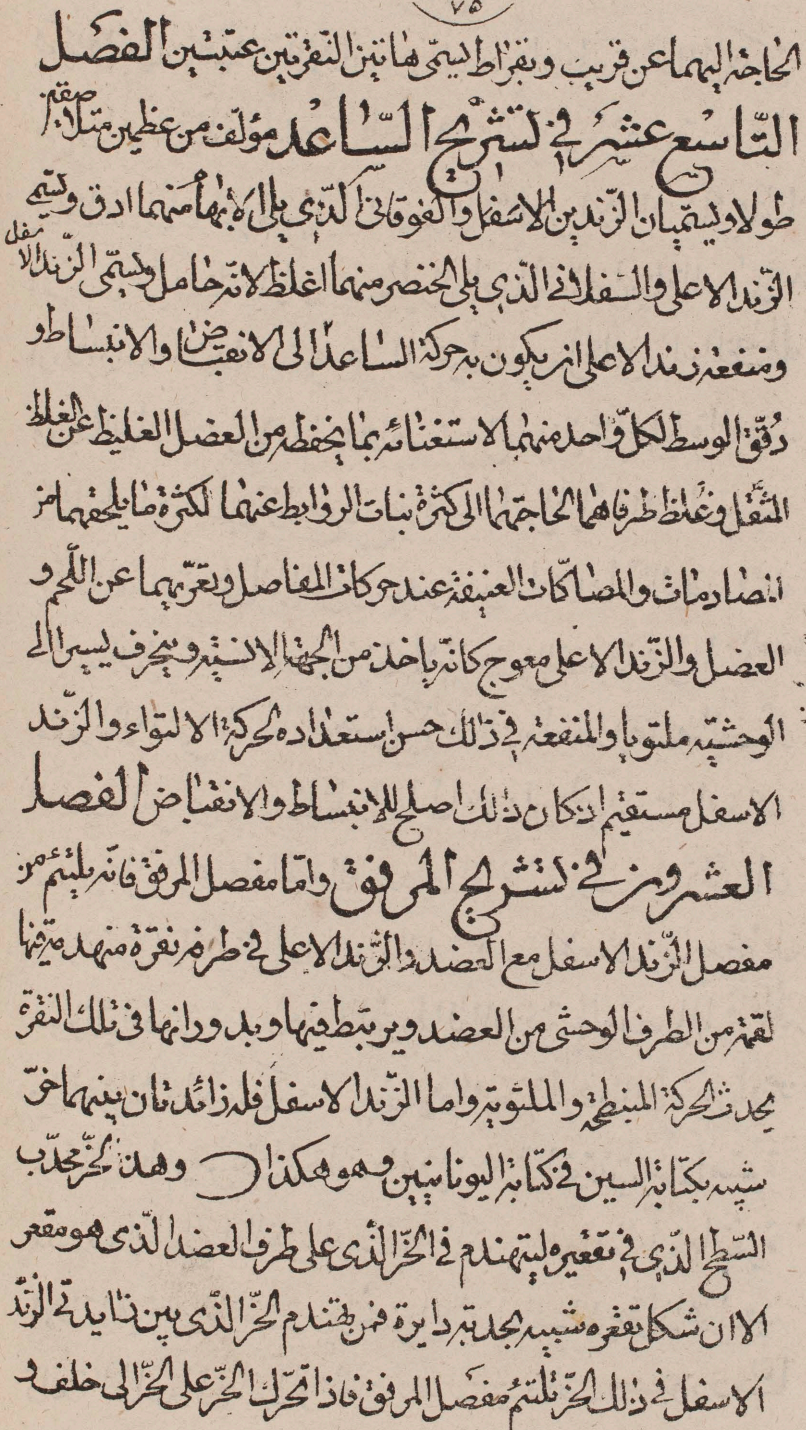 ٧٥
الحاجة اليهما عن قريب وبقراط يسمى هاتين النقرتين عتبتين الفصل
التاسع عشر في تشريح الساعد مؤلف من عظمين متلاصقين
طولا ويسميان الزندين الاسفل والفوقانى الذي يلى الابهام منهما ادق ويسمى
الزند الاعلى والسفلانى الذي يلى الخنصر منهما اغلظ لانه حامل ويسمى الزند الاسفل
ومنفعة زند الاعلى ان يكون به حركة الساعد الى الانقباض والانبساط و
دُقّق الوسط لكل واحد منهما لاستغنائه بما يحفظه من العضل الغليظ عن الغلظ
المثقل وغلظ طرفاهما لحاجتهما الى كثرة نبات الروابط عنهما لكثرة ما يلحقهما من
المصادمات والمصاكات العنيفة عند حركات المفاصل وتعرّيهما عن اللحم و
العضل والزند الاعلى معوج كانه ياخذ من الجهة الانسية وينحرف يسيرا الى
الوحشية ملتويا والمنفعة في ذلك حسن استعداده لحركة الالتواء والزند
الاسفل مستقيم اذ كان ذلك اصلح للانبساط والانقباض الفصل
العشرون في تشريح المرفق واما مفصل المرفق فانه يلتئم من
مفصل الزند الاسفل مع العضد والزند الاعلى في طرفه نقرة مهندمة فيها
لقمة من الطرف الوحشى من العضد ويرتبط فيها وبدورانها فى تلك النقرة
يحدث الحركة المنبطحة والملتوية واما الزند الاسفل فله زائدتان بينهما حزّ
شبيه بكتابة السين في كتابة اليونانيين وهو هكذا C وهذا الحزّ محدّب
السّطح الذي في تقعيره ليتهندم في الحزّ الذى على طرف العضد الذى هو مقعر
الا ان شكل تقعره شبيه بحدبة دايرة فمن تهندم الحزّ الذى بين زايدتى الزند
الاسفل في ذلك الحزّ تلتئم مفصل المرفق فاذا تحرك الحزّ على الحزّ الى خلف و